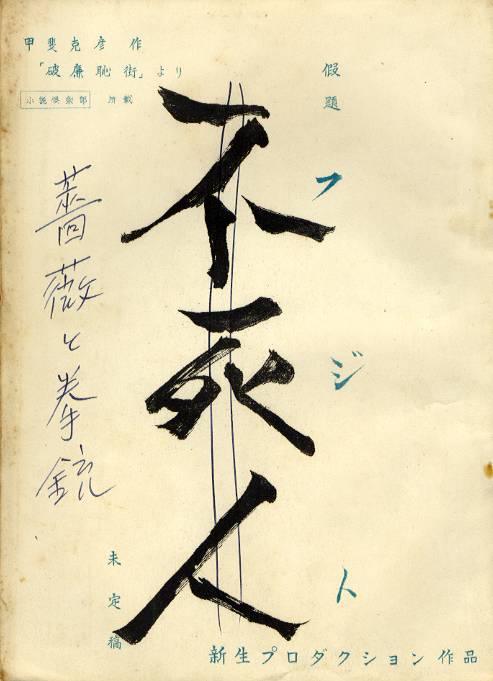 甲斐克彦 作
「破廉恥街」より
小説倶楽部 所載
假題
フジト
不死人
薔薇と拳銃
未定稿
新生プロダクション作品